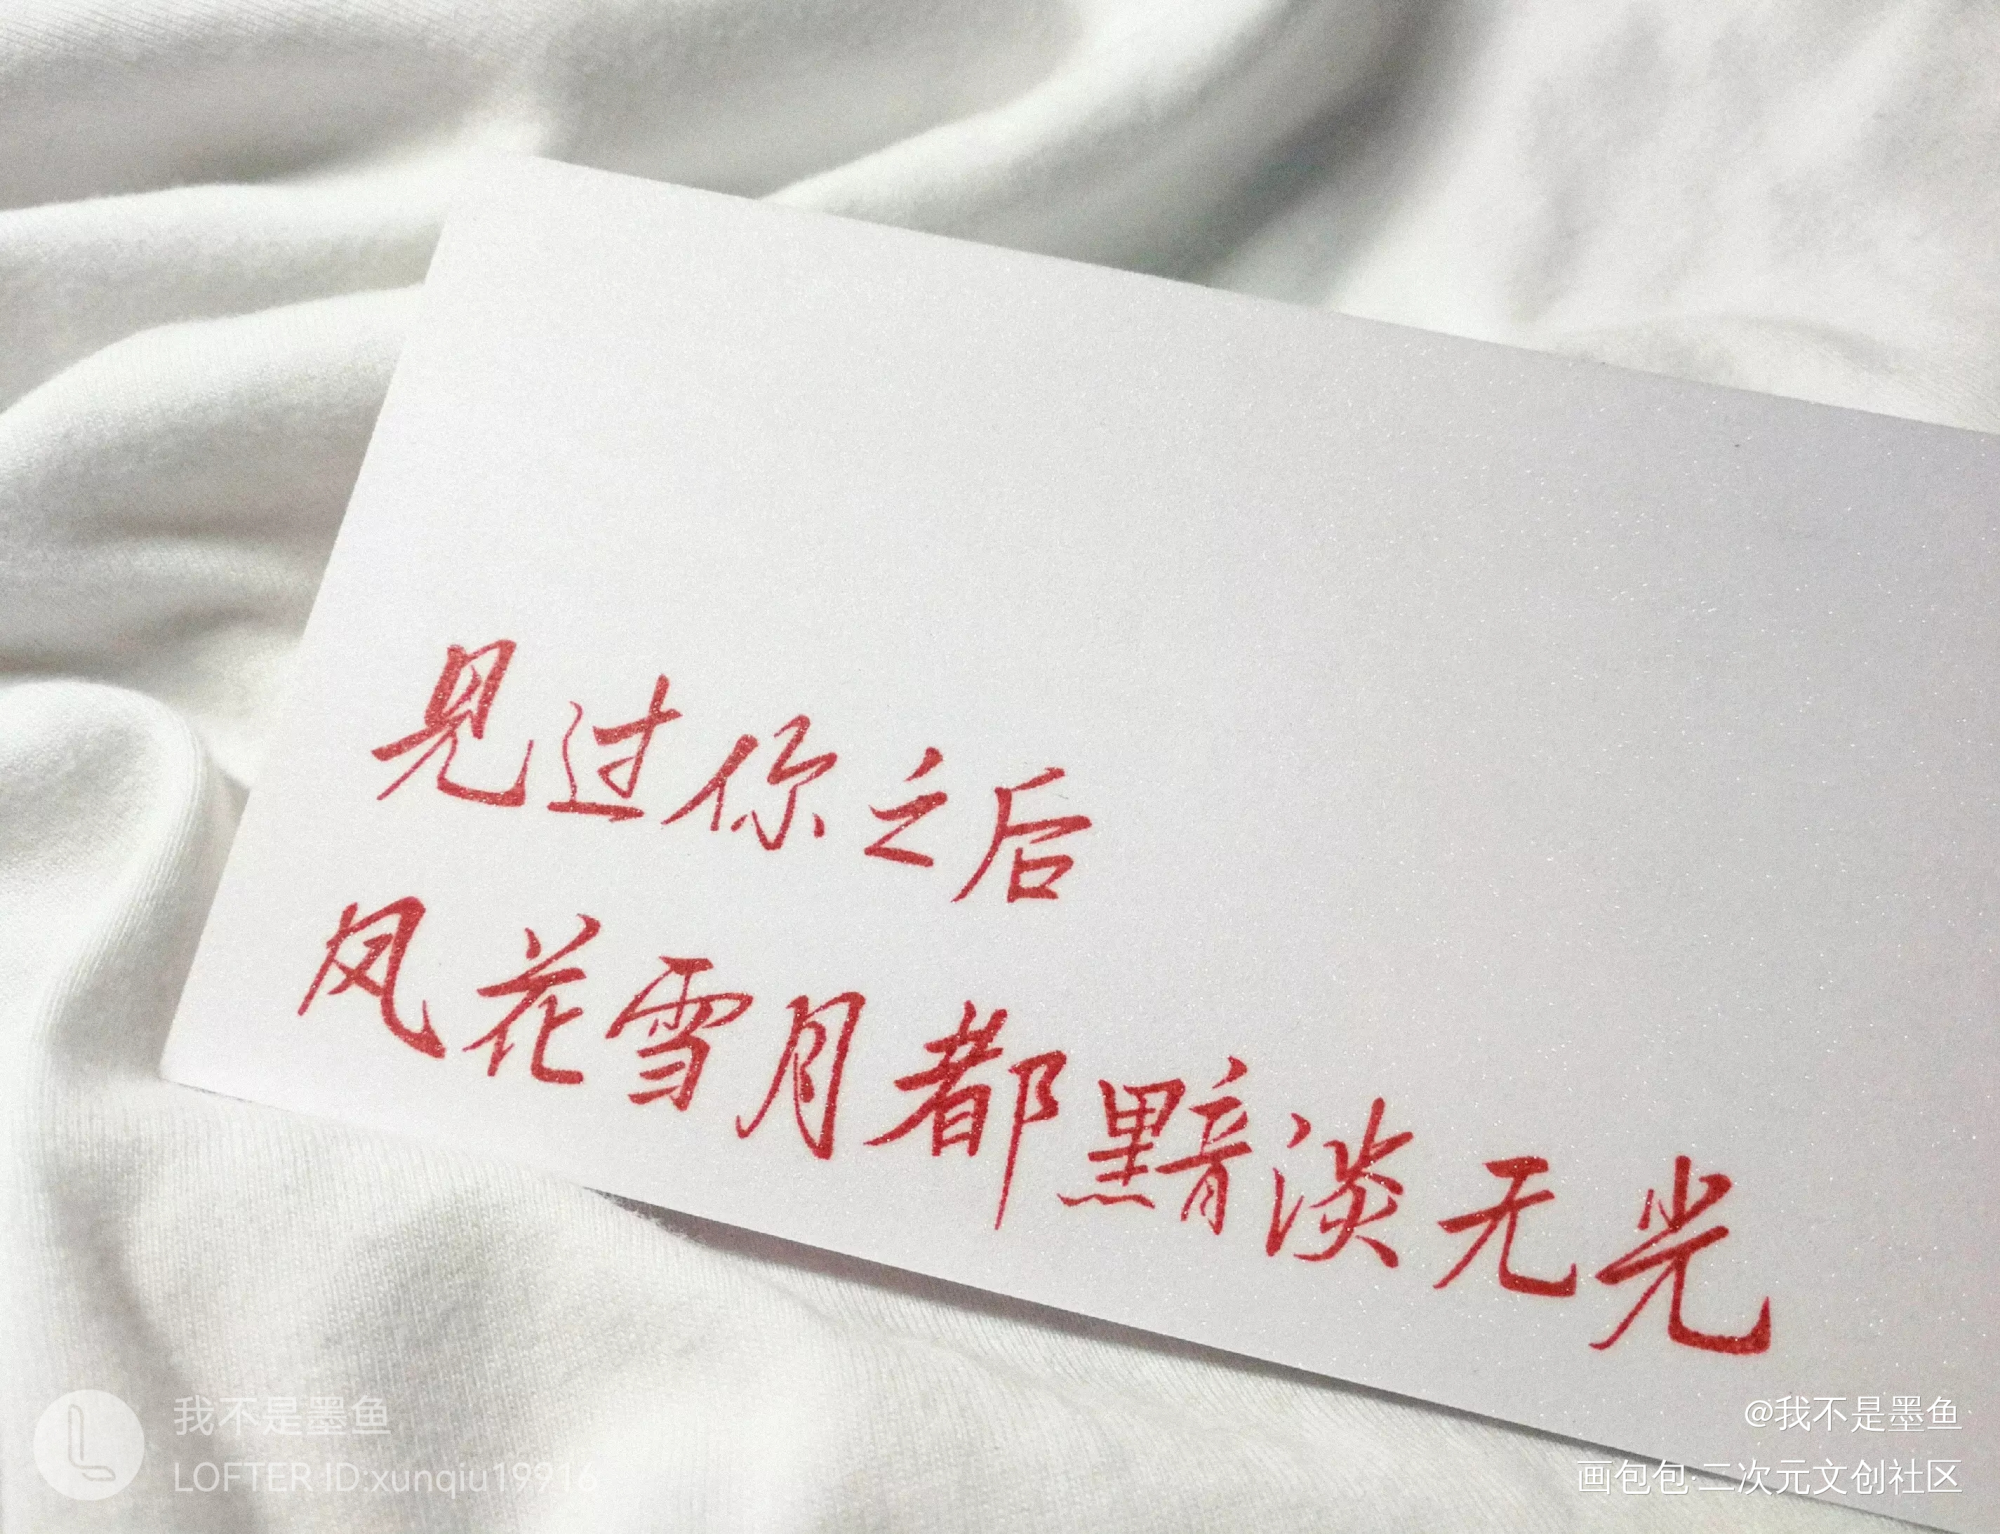 见过你之后
风花雪月都黯淡无光
我不是墨鱼
LOFTER ID:xunqiu19916
@我不是墨鱼
画包包·二次元文创社区